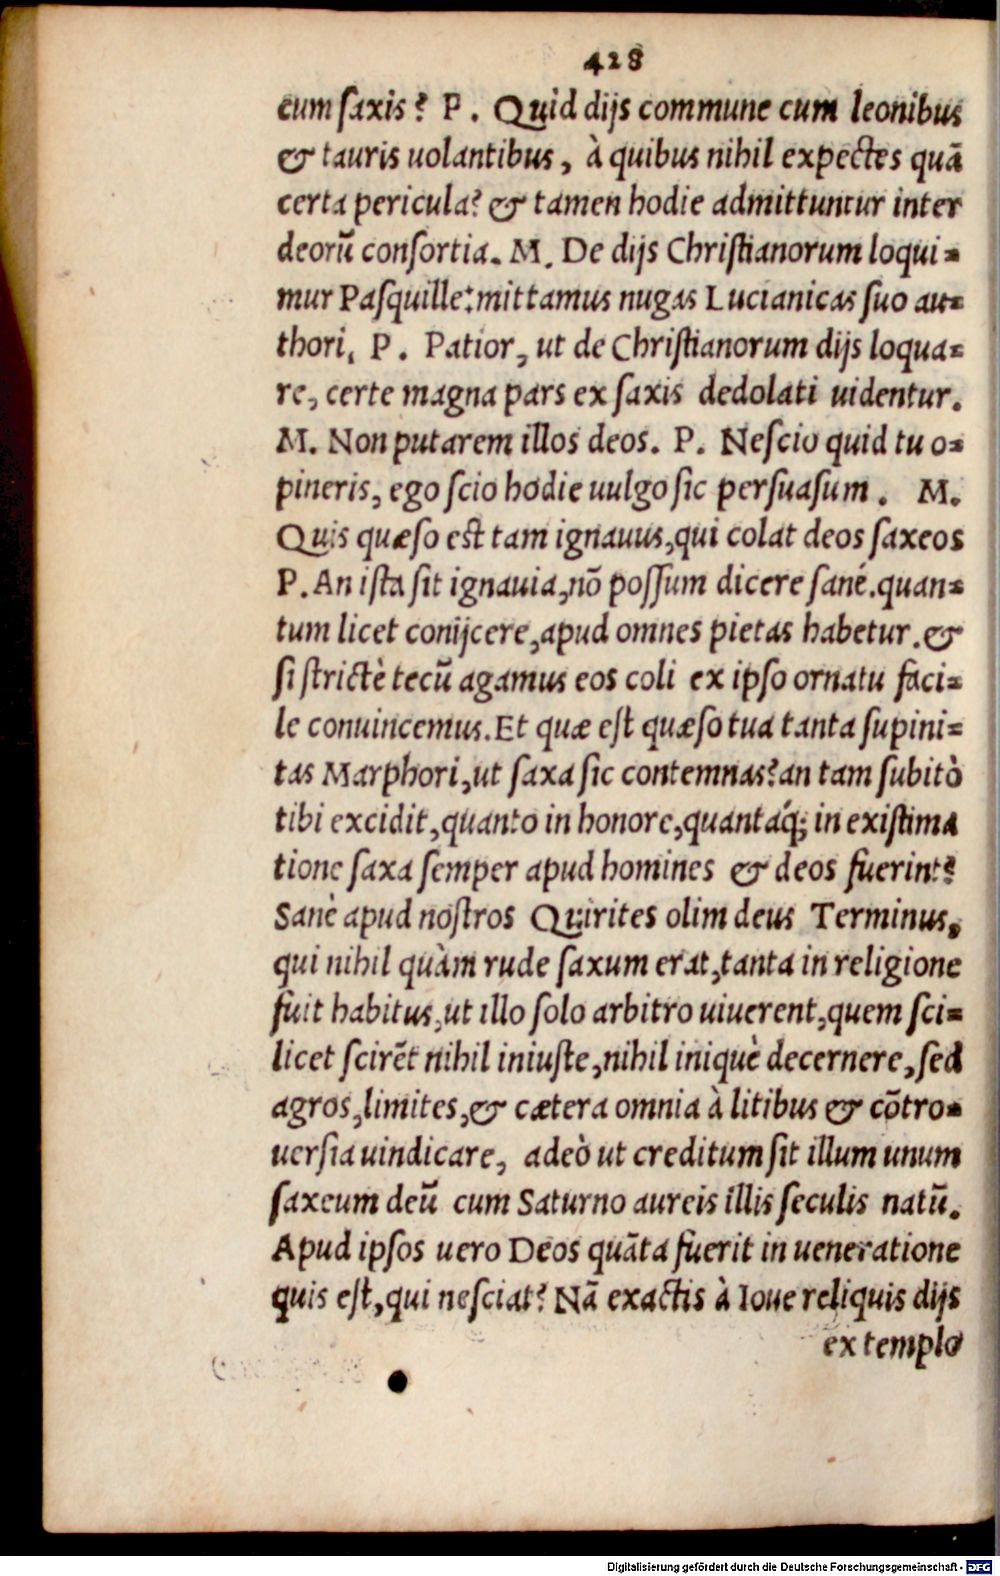 428
cum saxis? P. Quid dijs commune cum leonibus
& tauris uolantibus, à quibus nihil expectes quā
certa pericula? & tamen hodie admittuntur inter
deorū consortia. M. De dijs Christianorum loqui-
mur Pasquille: mittamus nugas Lucianicas suo au-
thori. P. Patior, ut de Christianorum dijs loqua-
re, certe magna pars ex saxis dedolati uidentur.
M. Non putarem illos deos. P. Nescio quid tu o-
pineris, ego scio hodie uulgo sic persuasum. M.
Quis quæso est tam ignauus, qui colat deos saxeos
P. An ista sit ignauia, nō possum dicere sanè. quan-
tum licet conijcere, apud omnes pietas habetur. &
si strictè tecū agamus eos coli ex ipso ornatu faci-
le conuincemus. Et quæ est quæso tua tanta supini-
tas Marphori, ut saxa sic contemnas? an tam subitò
tibi excidit, quanto in honore, quantáq; in existima
tione saxa semper apud homines & deos fuerint?
Sanè apud nostros Quirites olim deus Terminus,
qui nihil quàm rude saxum erat, tanta in religione
fuit habitus, ut illo solo arbitro uiuerent, quem sci-
licet scirēt nihil iniuste, nihil iniquè decernere, sed
agros, limites, & cætera omnia à litibus & cōtro-
uersia uindicare, adeò ut creditum sit illum unum
saxeum deū cum Saturno aureis illis seculis natū.
Apud ipsos uero Deos quāta fuerit in ueneratione
quis est, qui nesciat? Nā exactis à Ioue reliquis dijs
ex templo
Digitalisierung gefördert durch die Deutsche Forschungsgemeinschaft - DFG